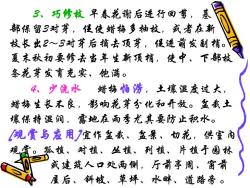 3、巧修枝 早春花谢后进行回剪，基
部保留3对芽，促使蜡梅多抽枝，或者在新
枝长出2～3对芽后摘去顶芽，促进萌发侧梢。
夏末秋初要修去当年生新顶梢，使中、下部枝
条花芽发育充实、饱满。
4、少浇水 蜡梅怕涝，土壤湿度过大，
蜡梅生长不良，影响花芽分化和开放。盆栽土
壤保持湿润，露地在雨季尤其要防止积水。
[观赏与应用]宜作盆栽、盆景、切花，供室内
观赏。孤植、对植、丛植、列植、片植于园林
或建筑入口处两侧、厅前亭周、窗前
屋后、斜坡、草坪、水畔、道路旁。